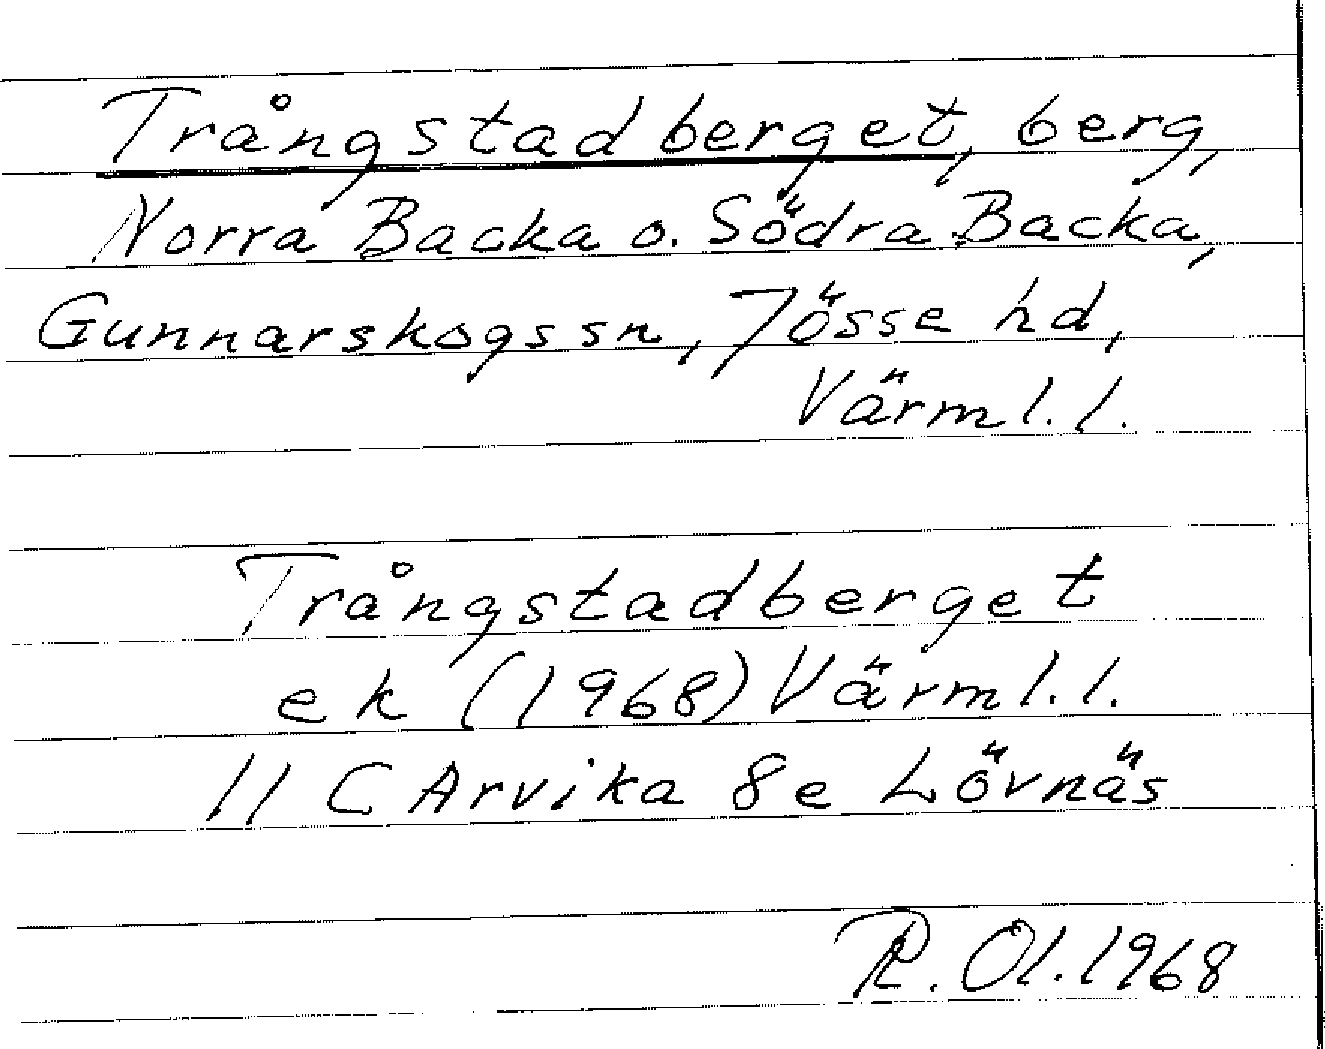 Trångstadberget, berg,
Norra Backa o. Södra Backa,
Gunnarskogs sn, Jösse hd,
Värml. l.
Trångstadberget
ek (1968) Värml. l.
11 C Arvika 8e Lövnäs
R. Ol. 1968